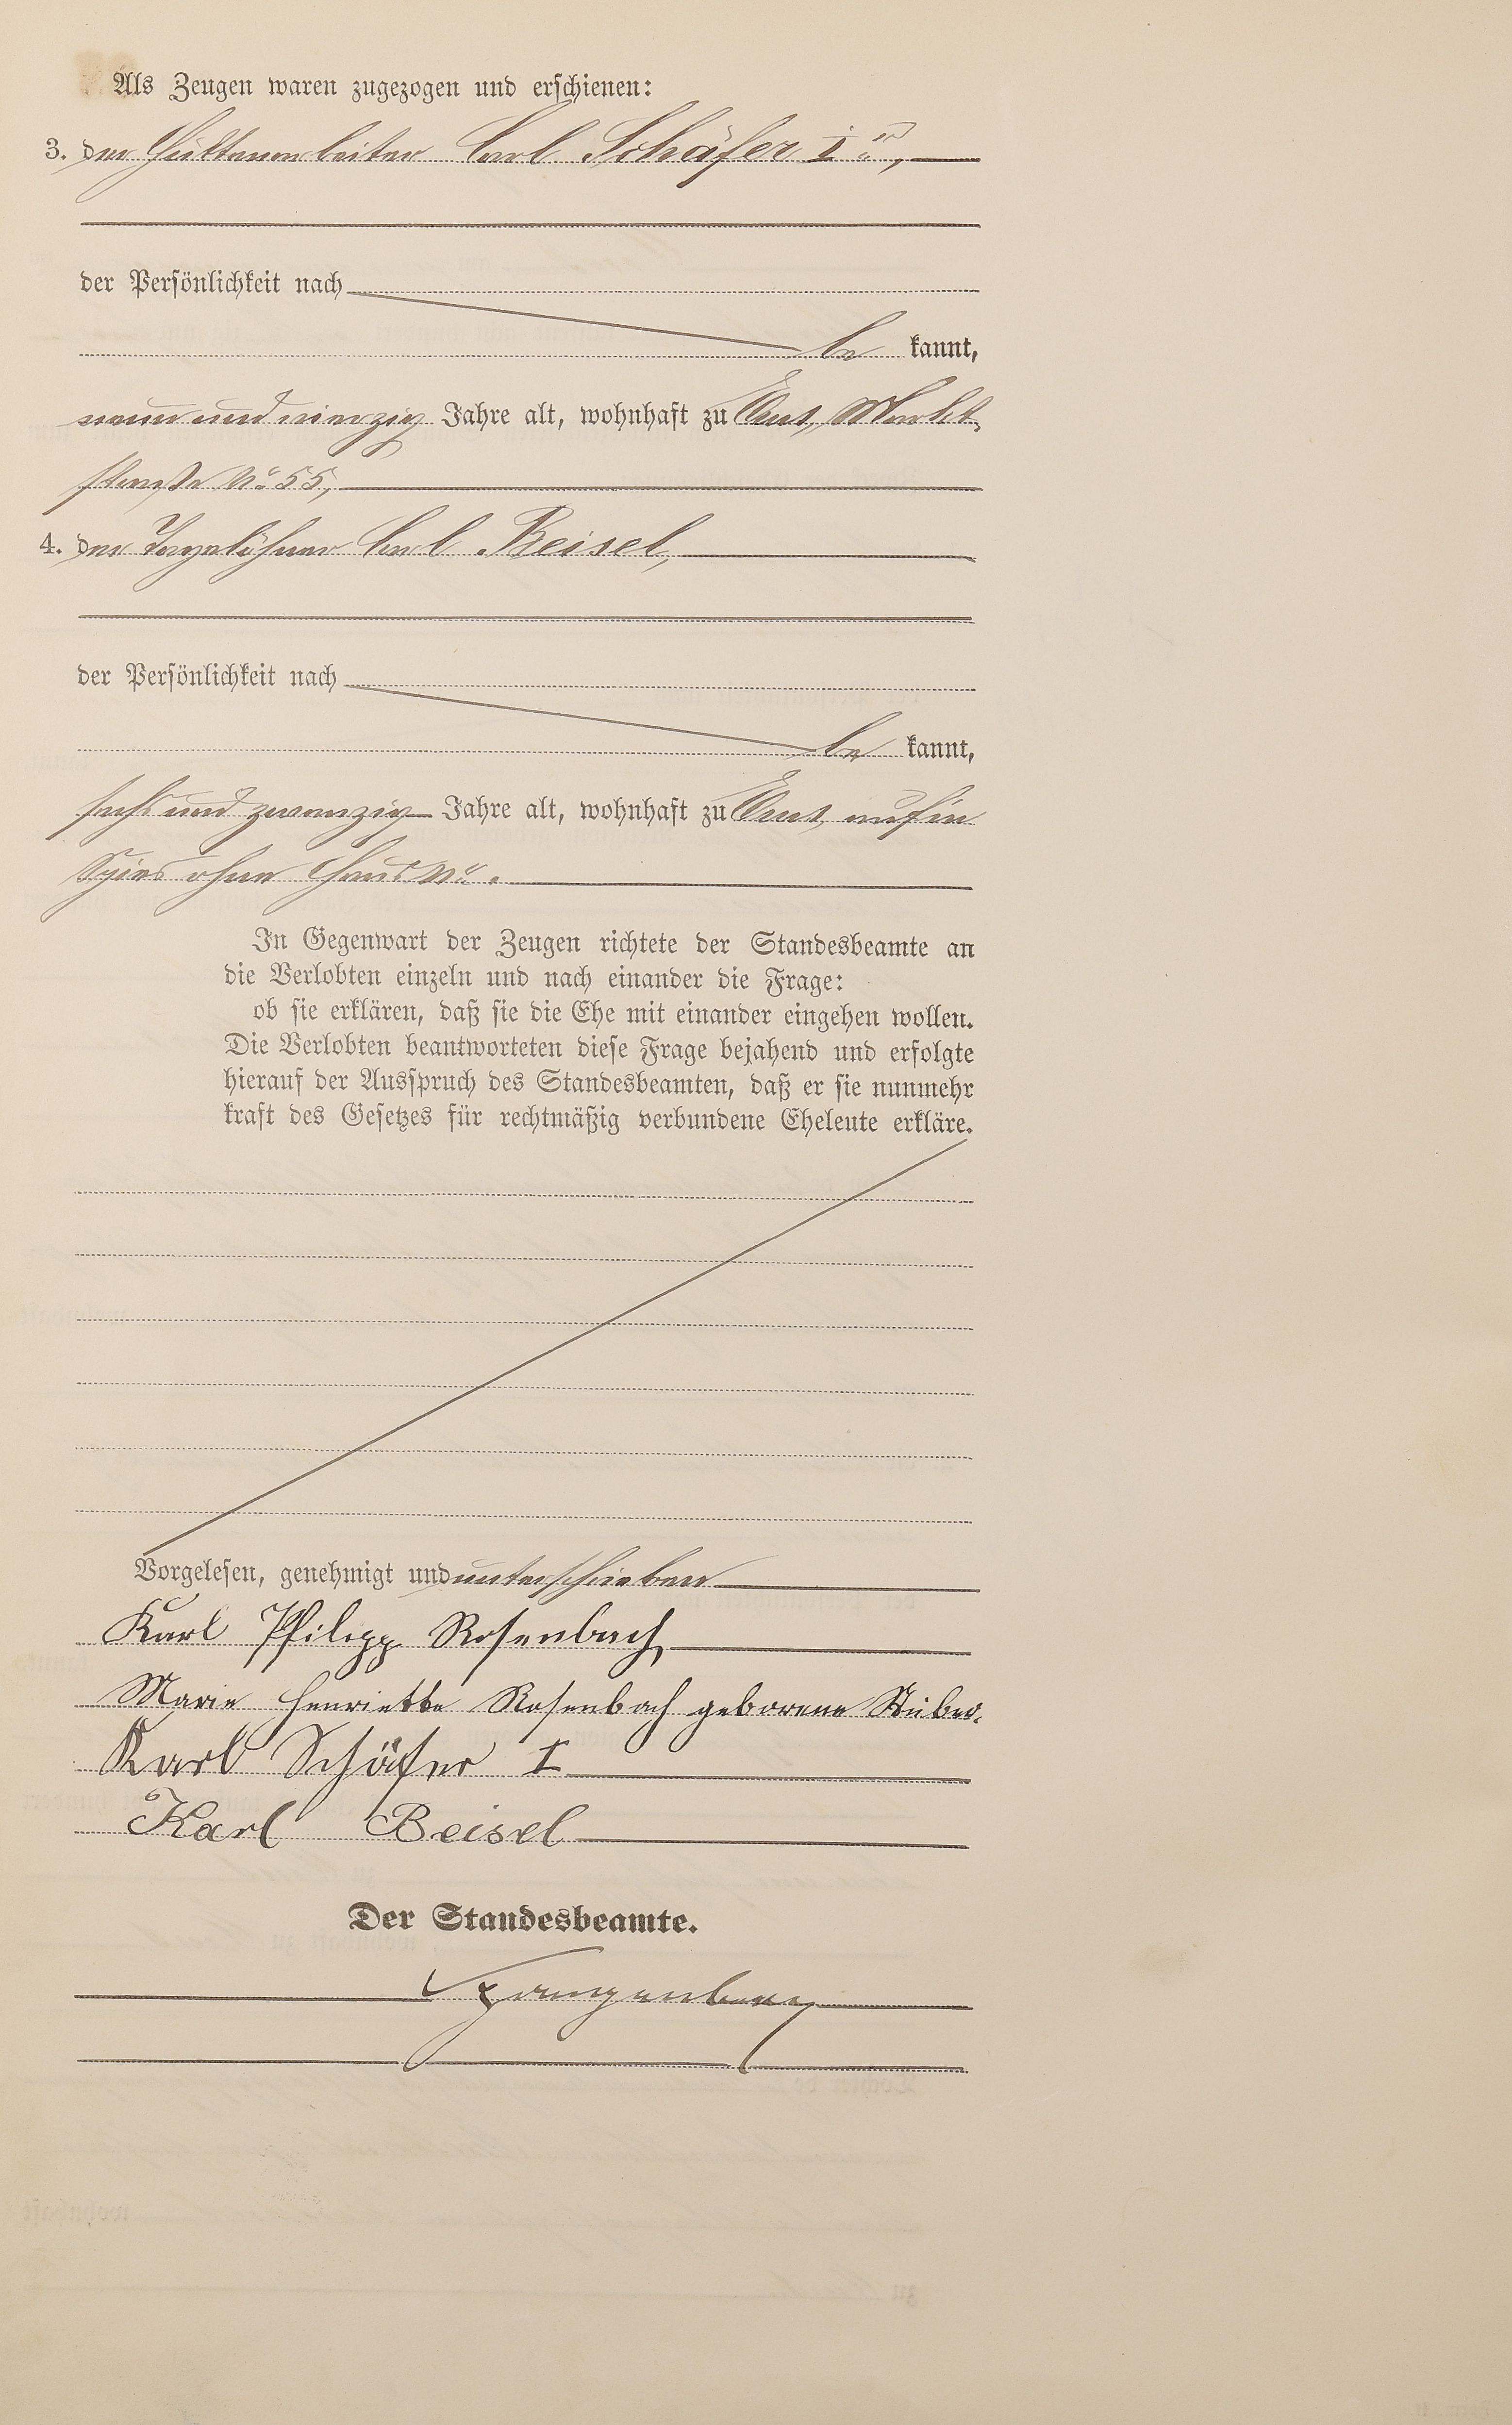 Als Zeugen waren zugezogen und erschienen:
3. der Hüttenarbeiter Carl Schäfer I
der Persönlichkeit nach
be kannt,
neun und vierzig Jahre alt, wohnhaft zu Ems, Markt-
straße No 55,
4. der Tagelöhner Carl Beisel,
der Persönlichkeit nach
be kannt,
sechs und zwanzig Jahre alt, wohnhaft zu Ems,
Spies ohne Haus No.
In Gegenwart der Zeugen richtete der Standesbeamte an
die Verlobten einzeln und nach einander die Frage:
ob sie erklären, daß sie die Ehe mit einander eingehen wollen.
Die Verlobten beantworteten diese Frage bejahend und erfolgte
hierauf der Ausspruch des Standesbeamten, daß er sie nunmehr
kraft des Gesetzes für rechtmäßig verbundene Eheleute erkläre.
Vorgelesen, genehmigt und unterschrieben
Karl Philipp Rosenbach
Marie Henriette Rosenbach geborene Stüber.
Karl Schäfer I
Karl Beisel
Der Standesbeamte.